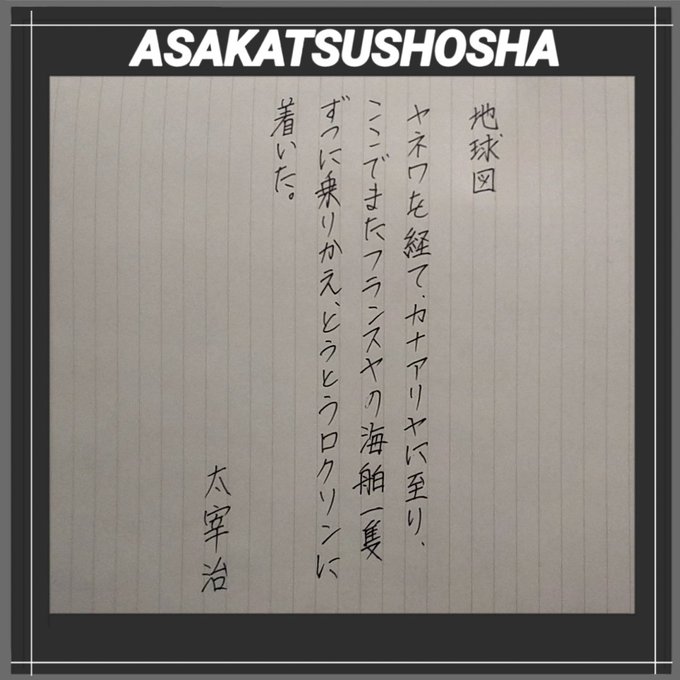 ASAKATSUSHOSHA
地球図
ヤネワを経て、カナアリヤに至り、
ここでまたフランスヤの海舶一隻
ずつに乗りかえ、とうとうロクソンに
着いた。
太宰治